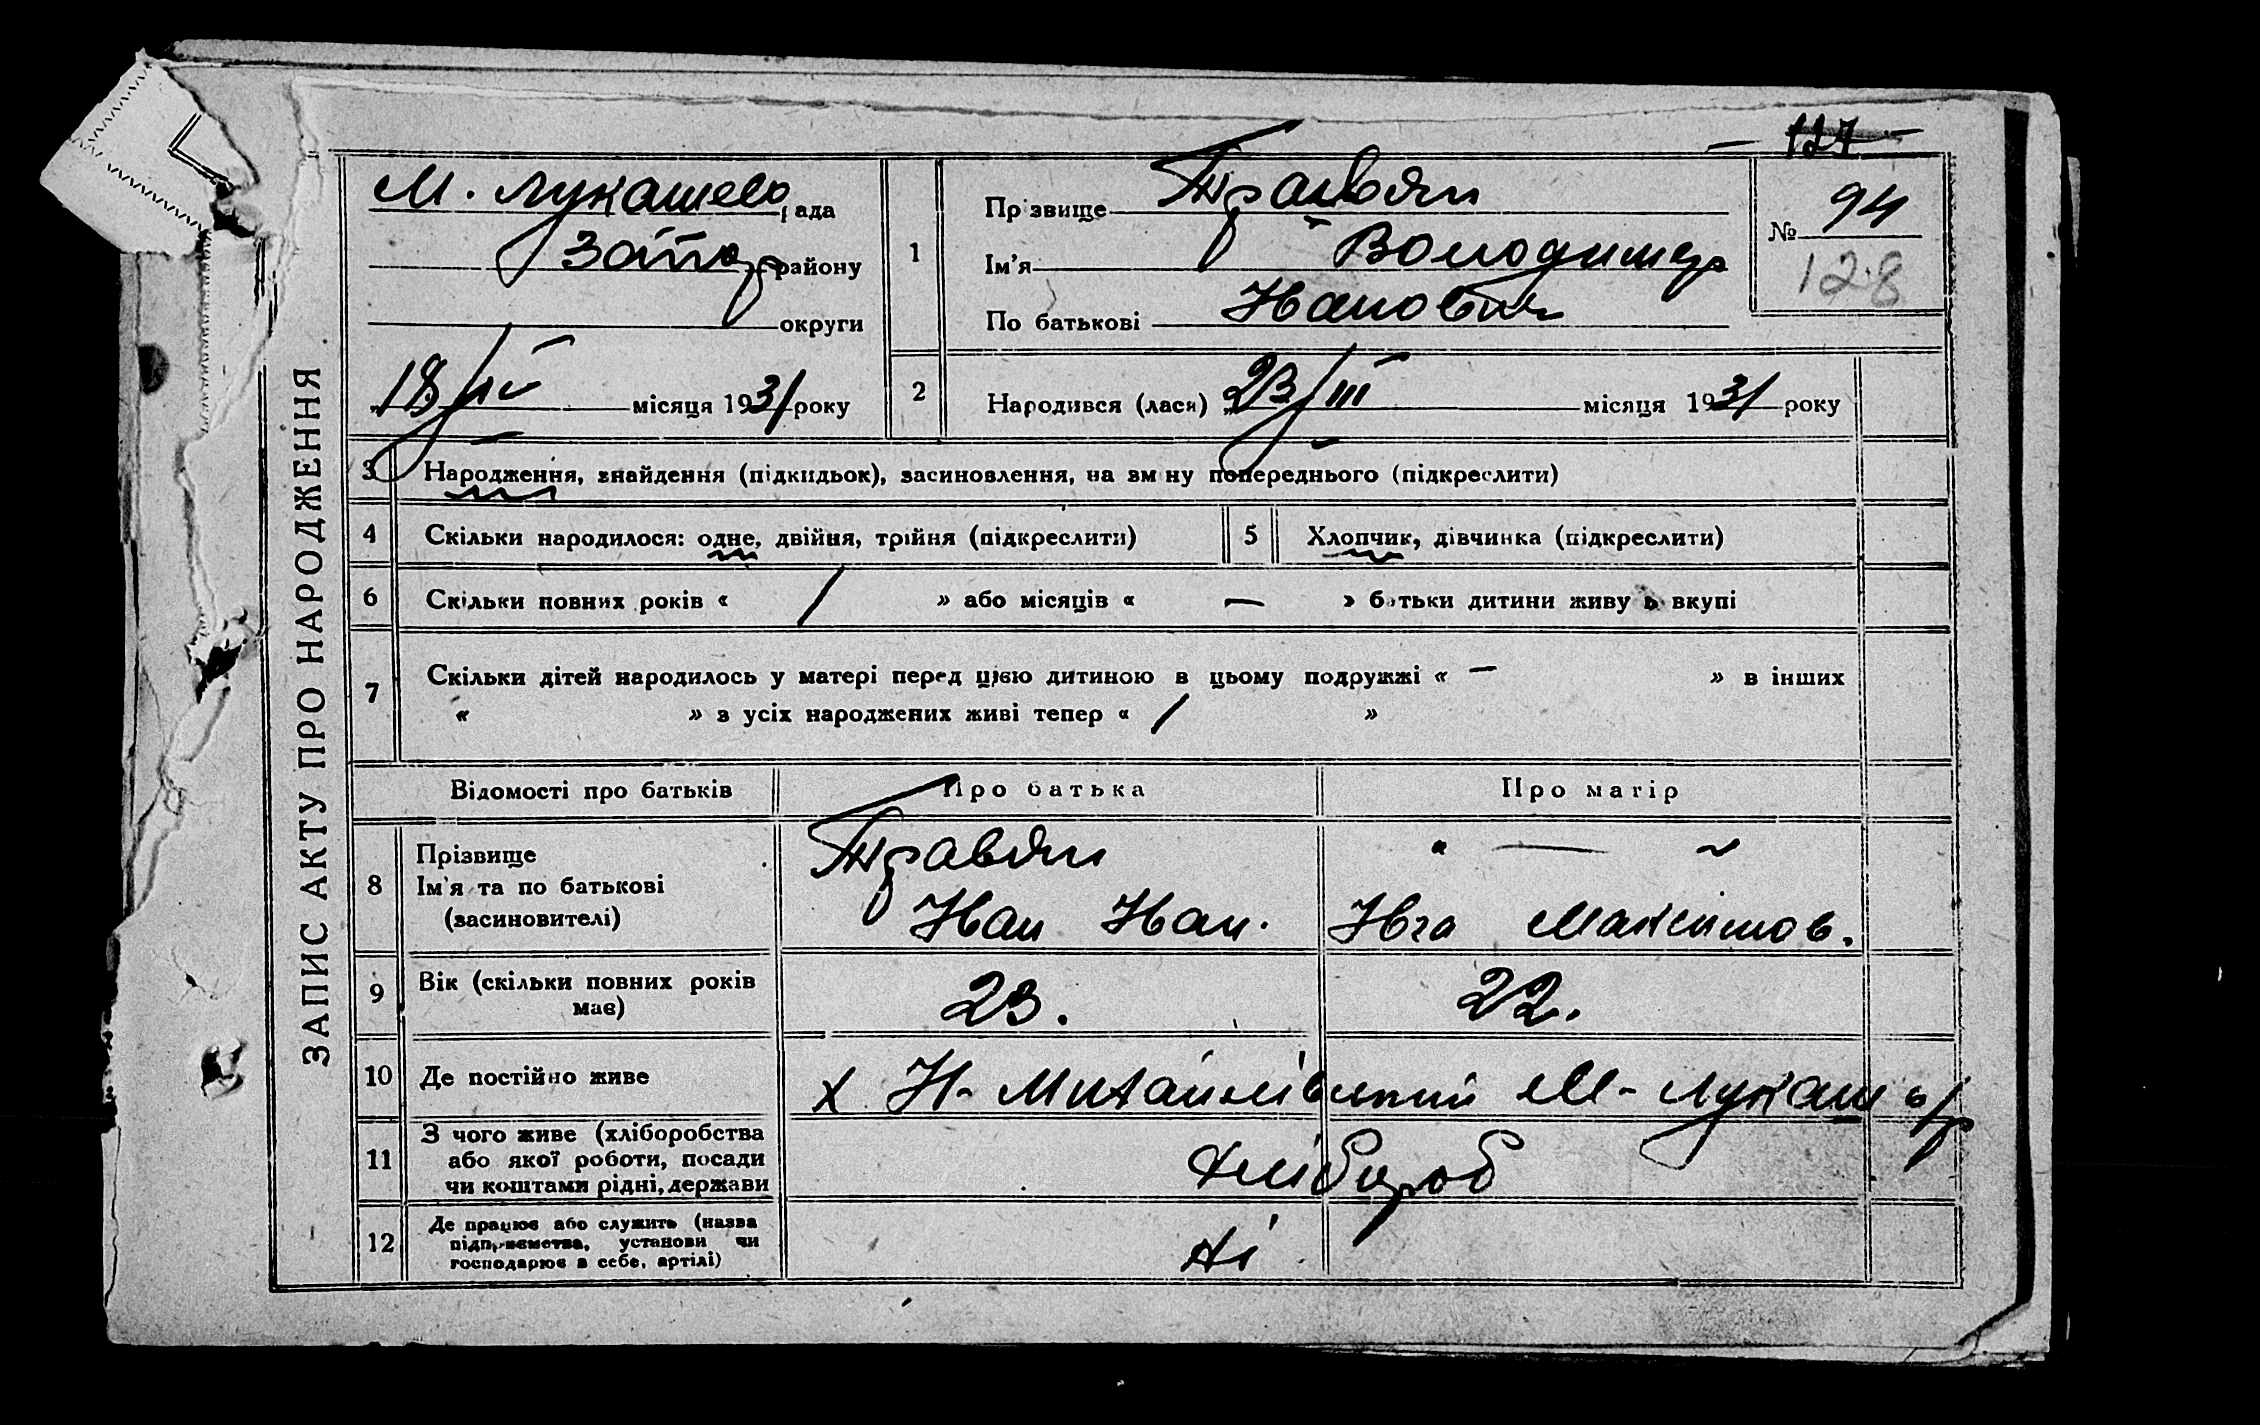 127
М. Лукашево рада
Запор району
округи
18/IV місяця 1931 року
1
Прізвище Травян
Ім'я Володимер
По батькові Иванович
№ 94
128
2
Народився (лася) „23/III місяця 1931 року
ЗАПИС АКТУ ПРО НАРОДЖЕННЯ
3 Народження, знайдення (підкидьок), засиновлення, на зміну попереднього (підкреслити)
4 Скільки народилося: одне, двійня, трійня (підкреслити) 5 Хлопчик, дівчинка (підкреслити)
6 Скільки повних років « / » або місяців « — » батьки дитини живуть вкупі
7 Скільки дітей народилось у матері перед цією дитиною в цьому подружжі « — » в інших
« » з усіх народжених живі тепер « / »
Відомості про батьків Про батька Про матір
8 Прізвище Травян " — "
Ім'я та по батькові Иван Иван. Ивга Максимов.
(засиновителі)
9 Вік (скільки повних років має) 23. 22.
10 Де постійно живе х Н-Михайлівський М-Лукаш с/р
11 З чого живе (хліборобства
або якої роботи, посади
чи коштами рідні, держави хлібороб
12 Де працює або служить (назва
підприємства, установи чи
господарює в себе, артілі)